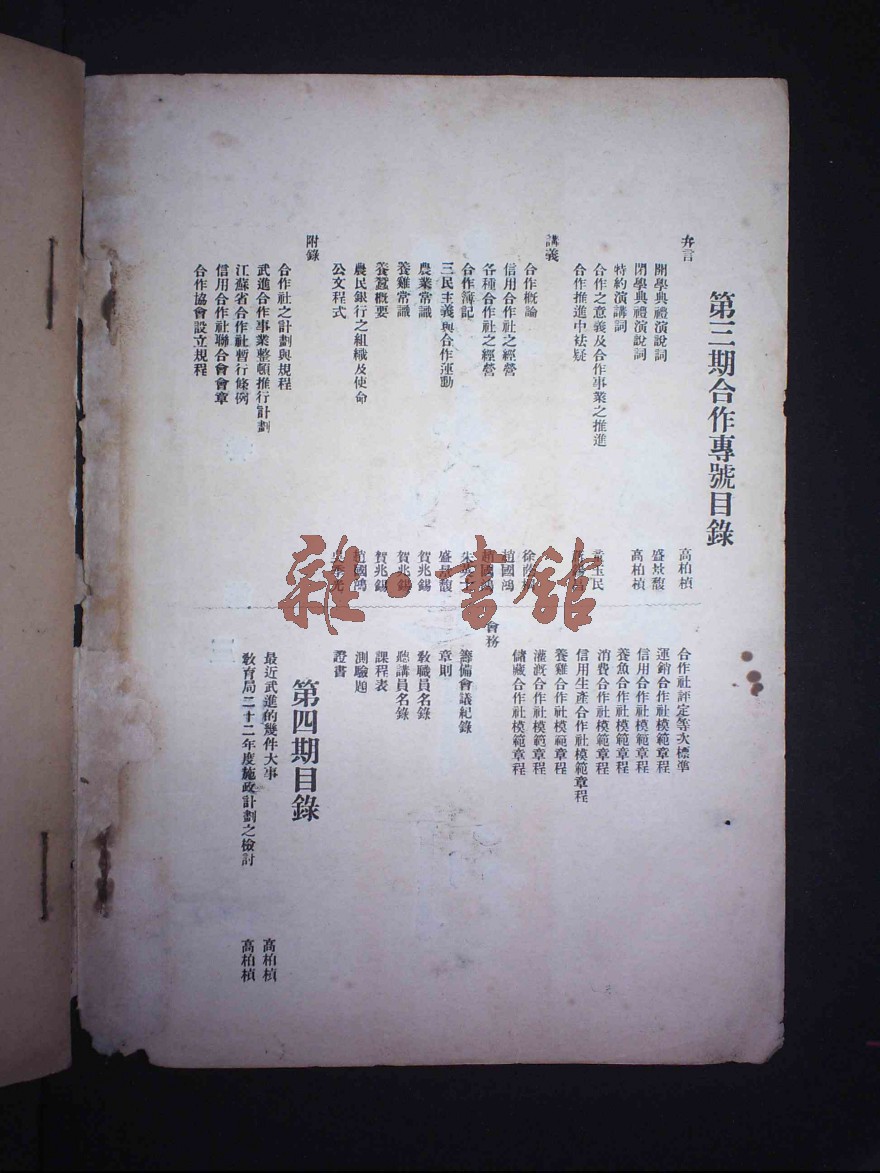 第三期合作專號目錄
弁言 高柏楨
開學典禮演說詞 盛景馥
閉學典禮演說詞 高柏楨
特約演講詞
合作之意義及合作事業之推進 玉民
合作推進中袪疑
講義
合作概論 徐
信用合作社之經營 趙國鴻
各種合作社之經營 趙國鴻
合作簿記 朱
三民主義與合作運動 盛景馥
農業常識 賀兆錫
養雞常識 賀兆錫
養蠶概要 賀兆錫
農民銀行之組織及使命 趙國鴻
公文程式
附錄
合作社之計劃與規程
武進合作事業整頓推行計劃
江蘇省合作社暫行條例
信用合作社聯合會會章
合作協會設立規程
合作社評定等次標準
運銷合作社模範章程
信用合作社模範章程
養魚合作社模範章程
消費合作社模範章程
信用生產合作社模範章程
養雞合作社模範章程
灌溉合作社模範章程
儲藏合作社模範章程
會務
籌備會議紀錄
章則
教職員名錄
聽講員名錄
課程表
測驗題
證書
第四期目錄
最近武進的幾件大事 高柏楨
教育局二十二年度施政計劃之檢討 高柏楨
雜·書館